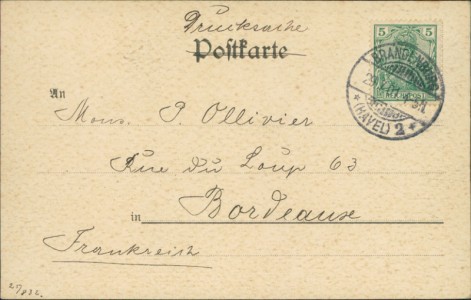 Drucksache
Postkarte
5 5
BRANDENBURG
(HAVEL) 2
An
Mons. P. Ollivier
Rue du Loup 63
in Bordeaux
Frankreich